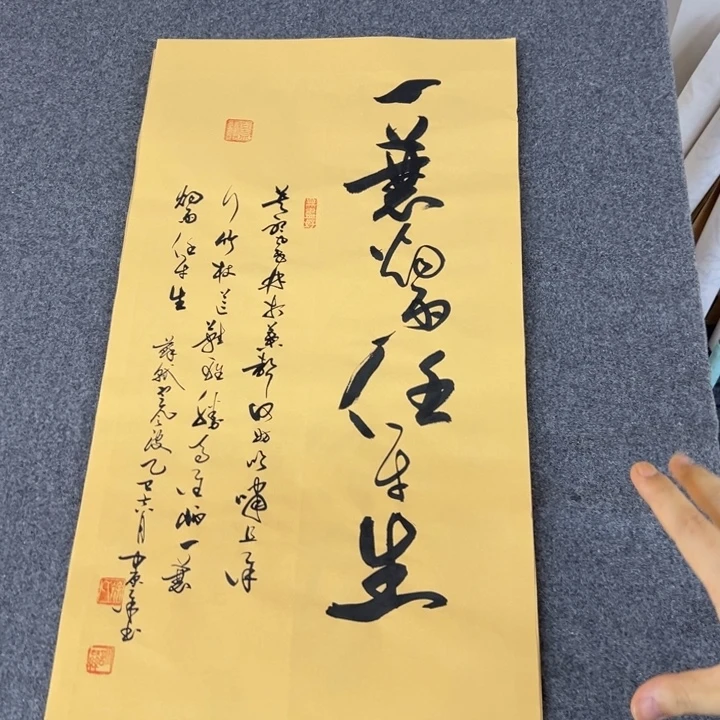 一蓑烟雨任平生
莫听穿林打叶声何妨吟啸且徐
行竹杖芒鞋轻胜马谁怕一蓑
烟雨任平生
苏轼 乙巳六月